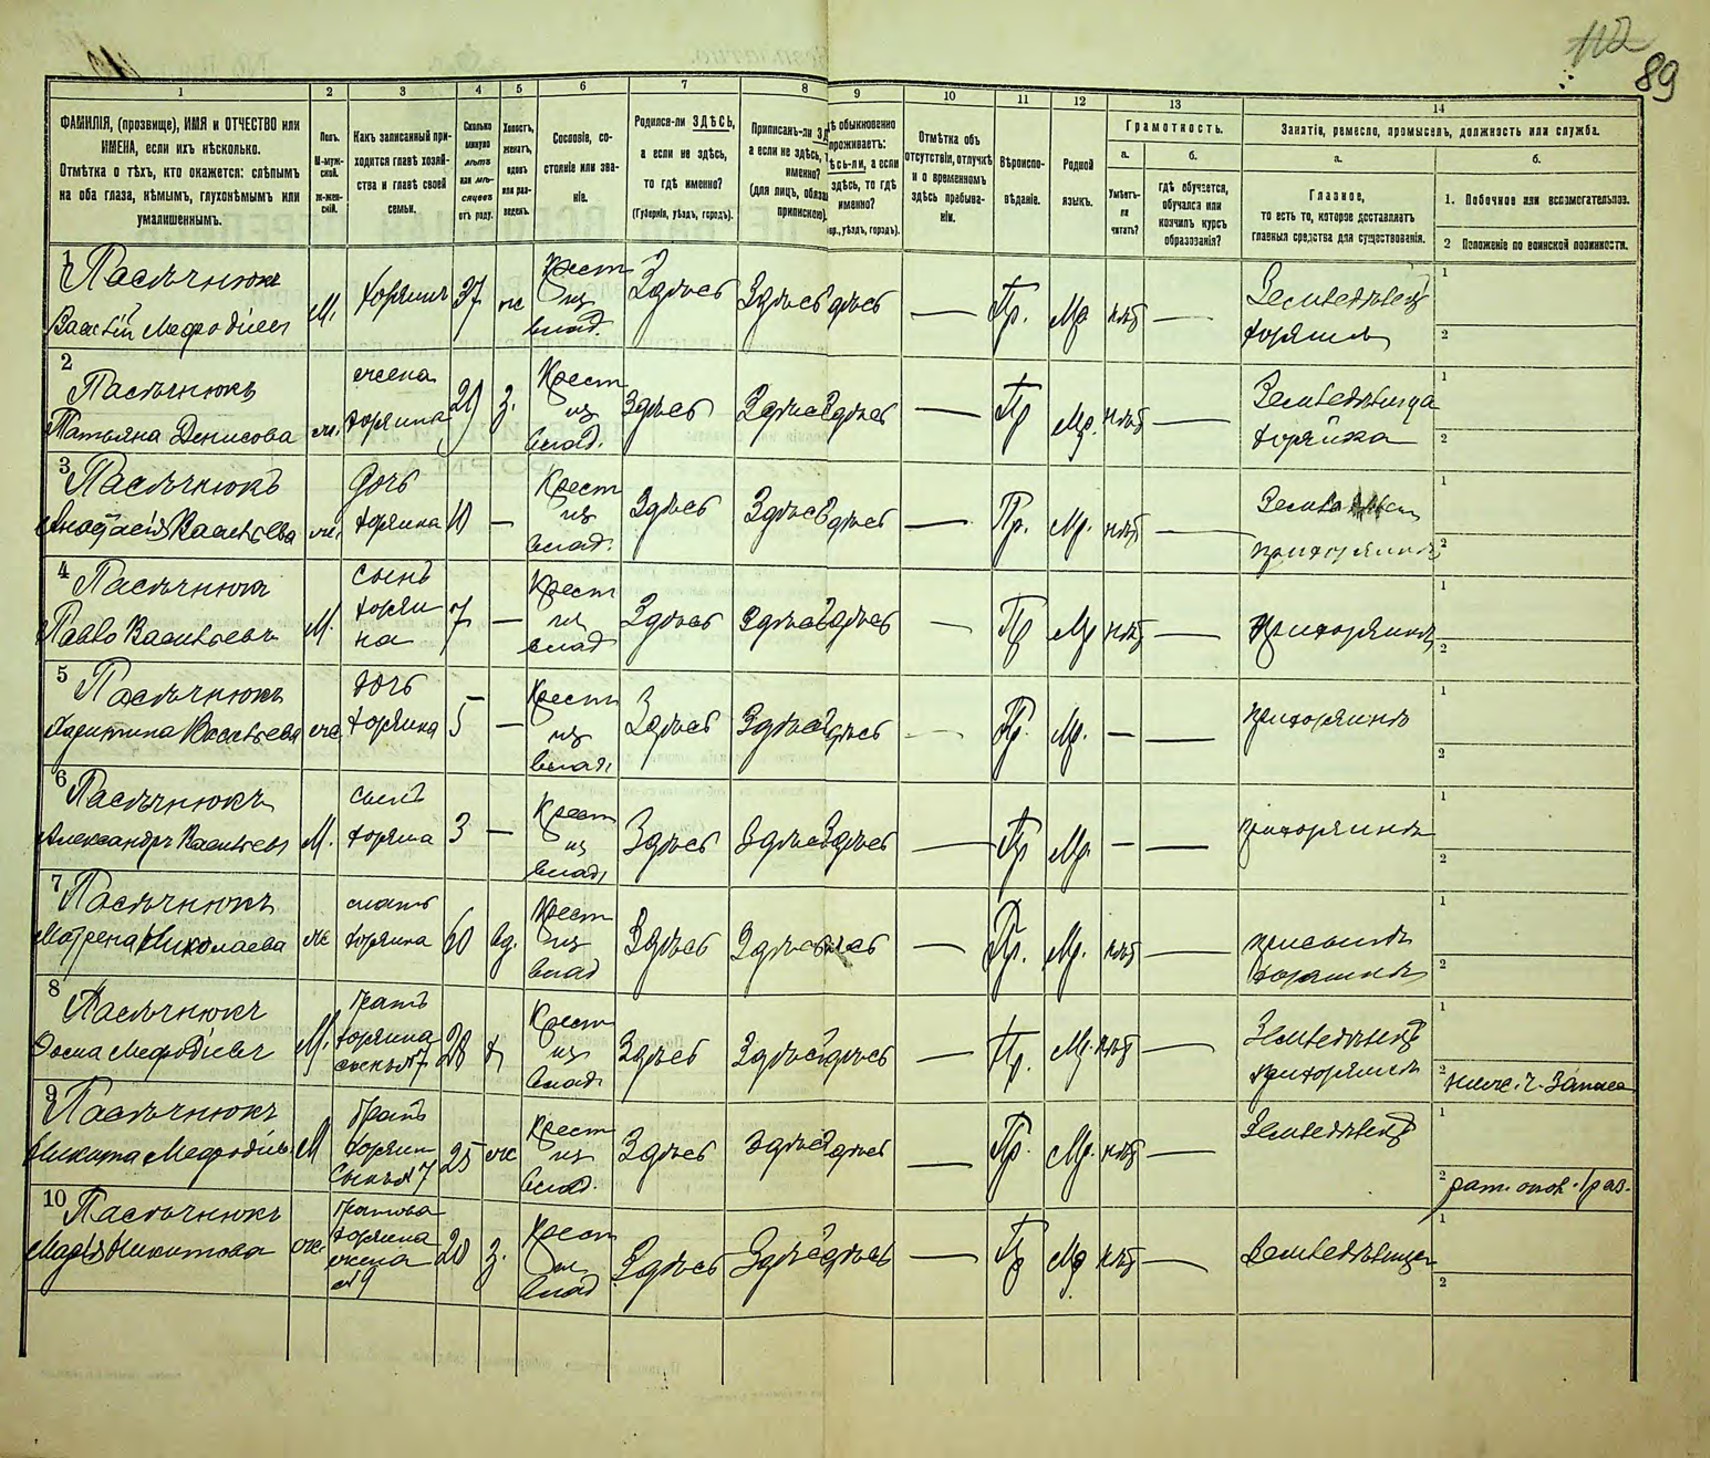 112
89
1 2 3 4 5 6 7 8 9 10 11 12 13 14
ФАМИЛІЯ, (прозвище), ИМЯ и ОТЧЕСТВО или
ИМЕНА, если ихъ нѣсколько.
Отмѣтка о тѣхъ, кто окажется: слѣпымъ
на оба глаза, нѣмымъ, глухонѣмымъ или
умалишеннымъ.
Полъ.
М-муж-
ской.
ж-жен-
скій.
Какъ записанный при-
ходится главѣ хозяй-
ства и главѣ своей
семьи.
Сколько
минуло
лѣтъ
или мѣ-
сяцевъ
отъ роду.
Холостъ,
женатъ,
вдовъ
или раз-
веденъ.
Сословіе, со-
стояніе или зва-
ніе.
Родился-ли ЗДѢСЬ,
а если не здѣсь,
то гдѣ именно?
(Губернія, уѣздъ, городъ).
Приписанъ-ли
а если не здѣсь,
именно?
(для лицъ, обяза
припискою).
ѣ обыкновенно
проживаетъ:
ѣсь-ли, а если
здѣсь, то гдѣ
именно?
р., уѣздъ, городъ).
Отмѣтка объ
отсутствіи, отлучкѣ
и о временномъ
здѣсь пребыва-
ніи.
Вѣроиспо-
вѣданіе.
Родной
языкъ.
Грамотность.
а.
Умѣетъ-
ли
читать?
б.
гдѣ обучается,
обучался или
кончилъ курсъ
образованія?
Занятіе, ремесло, промыселъ, должность или служба.
а.
Главное,
то есть то, которое доставляетъ
главныя средства для существованія.
б.
1. Побочное или вспомогательное.
2 Положеніе по воинской повинности.
1 Пасѣчнюкъ
Василій Мефодіевъ М. хозяинъ 37 ж Крест из влад. Здѣсь Здѣсь Здѣсь — Пр. Мр нѣтъ — Земледѣлецъ
хозяинъ
2 Пасѣчнюкъ
Татьяна Денисова ж. жена хозяина 29 з. Крест из влад. Здѣсь Здѣсь Здѣсь — Пр Мр. нѣтъ — Земледѣлица
хозяйка
3 Пасѣчнюкъ
Анастасія Васильева ж. дочь хозяина 10 — Крест из влад. Здѣсь Здѣсь Здѣсь — Пр. Мр. нѣтъ —
4 Пасѣчнюкъ
Павло Васильевъ М. сынъ хозяи на 7 — Крест из влад Здѣсь Здѣсь Здѣсь — Пр Мр нѣтъ —
5 Пасѣчнюкъ
Харитина Васильева ж. дочь хозяина 5 — Крест из влад. Здѣсь Здѣсь Здѣсь — Пр. Мр. — —
6 Пасѣчнюкъ
Александръ Васильевъ М. сынъ хозяина 3 — Крест из влад. Здѣсь Здѣсь Здѣсь — Пр Мр. — —
7 Пасѣчнюкъ
Мотрена Николаева ж мать хозяина 60 вд. Крест из влад Здѣсь Здѣсь Здѣсь — Пр. Мр. нѣтъ — при сынѣ
8 Пасѣчнюкъ
Фома Мефодіевъ М. братъ хозяина сынъ №7 28 х Крест из влад. Здѣсь Здѣсь Здѣсь — Пр. Мр. нѣтъ — Земледѣлецъ
2 ниж. ч. запаса
9 Пасѣчнюкъ
Никита Мефодіевъ М братъ хозяин сынъ №7 25 ж Крест из влад. Здѣсь Здѣсь Здѣсь — Пр. Мр. нѣтъ — Земледѣлецъ
2 рат. опол. 1 раз.
10 Пасѣчнюкъ
Марія Никитова ж. братова хозяина жена №9 20 з. Крест из влад Здѣсь Здѣсь Здѣсь — Пр Мр нѣтъ — Земледѣлица